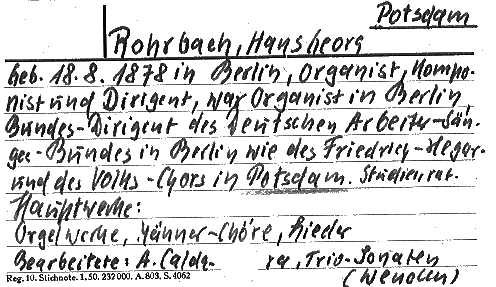 Potsdam
Rohrbach, Hansgeorg
geb. 18.8.1878 in Berlin, Organist, Kompo-
nist und Dirigent, war Organist in Berlin,
Bundes-Dirigent des Deutschen Arbeiter-Sän-
ger-Bundes in Berlin wie des Friedrich-Hegar-
und des Volks-Chors in Potsdam. Studienrat.
Hauptwerke:
Orgelwerke, Männer-Chöre, Lieder
Bearbeitete: A. Calda- ra, Trio-Sonaten
Reg. 10. Stichnote. 1,50. 232000. A. 803. S. 4062